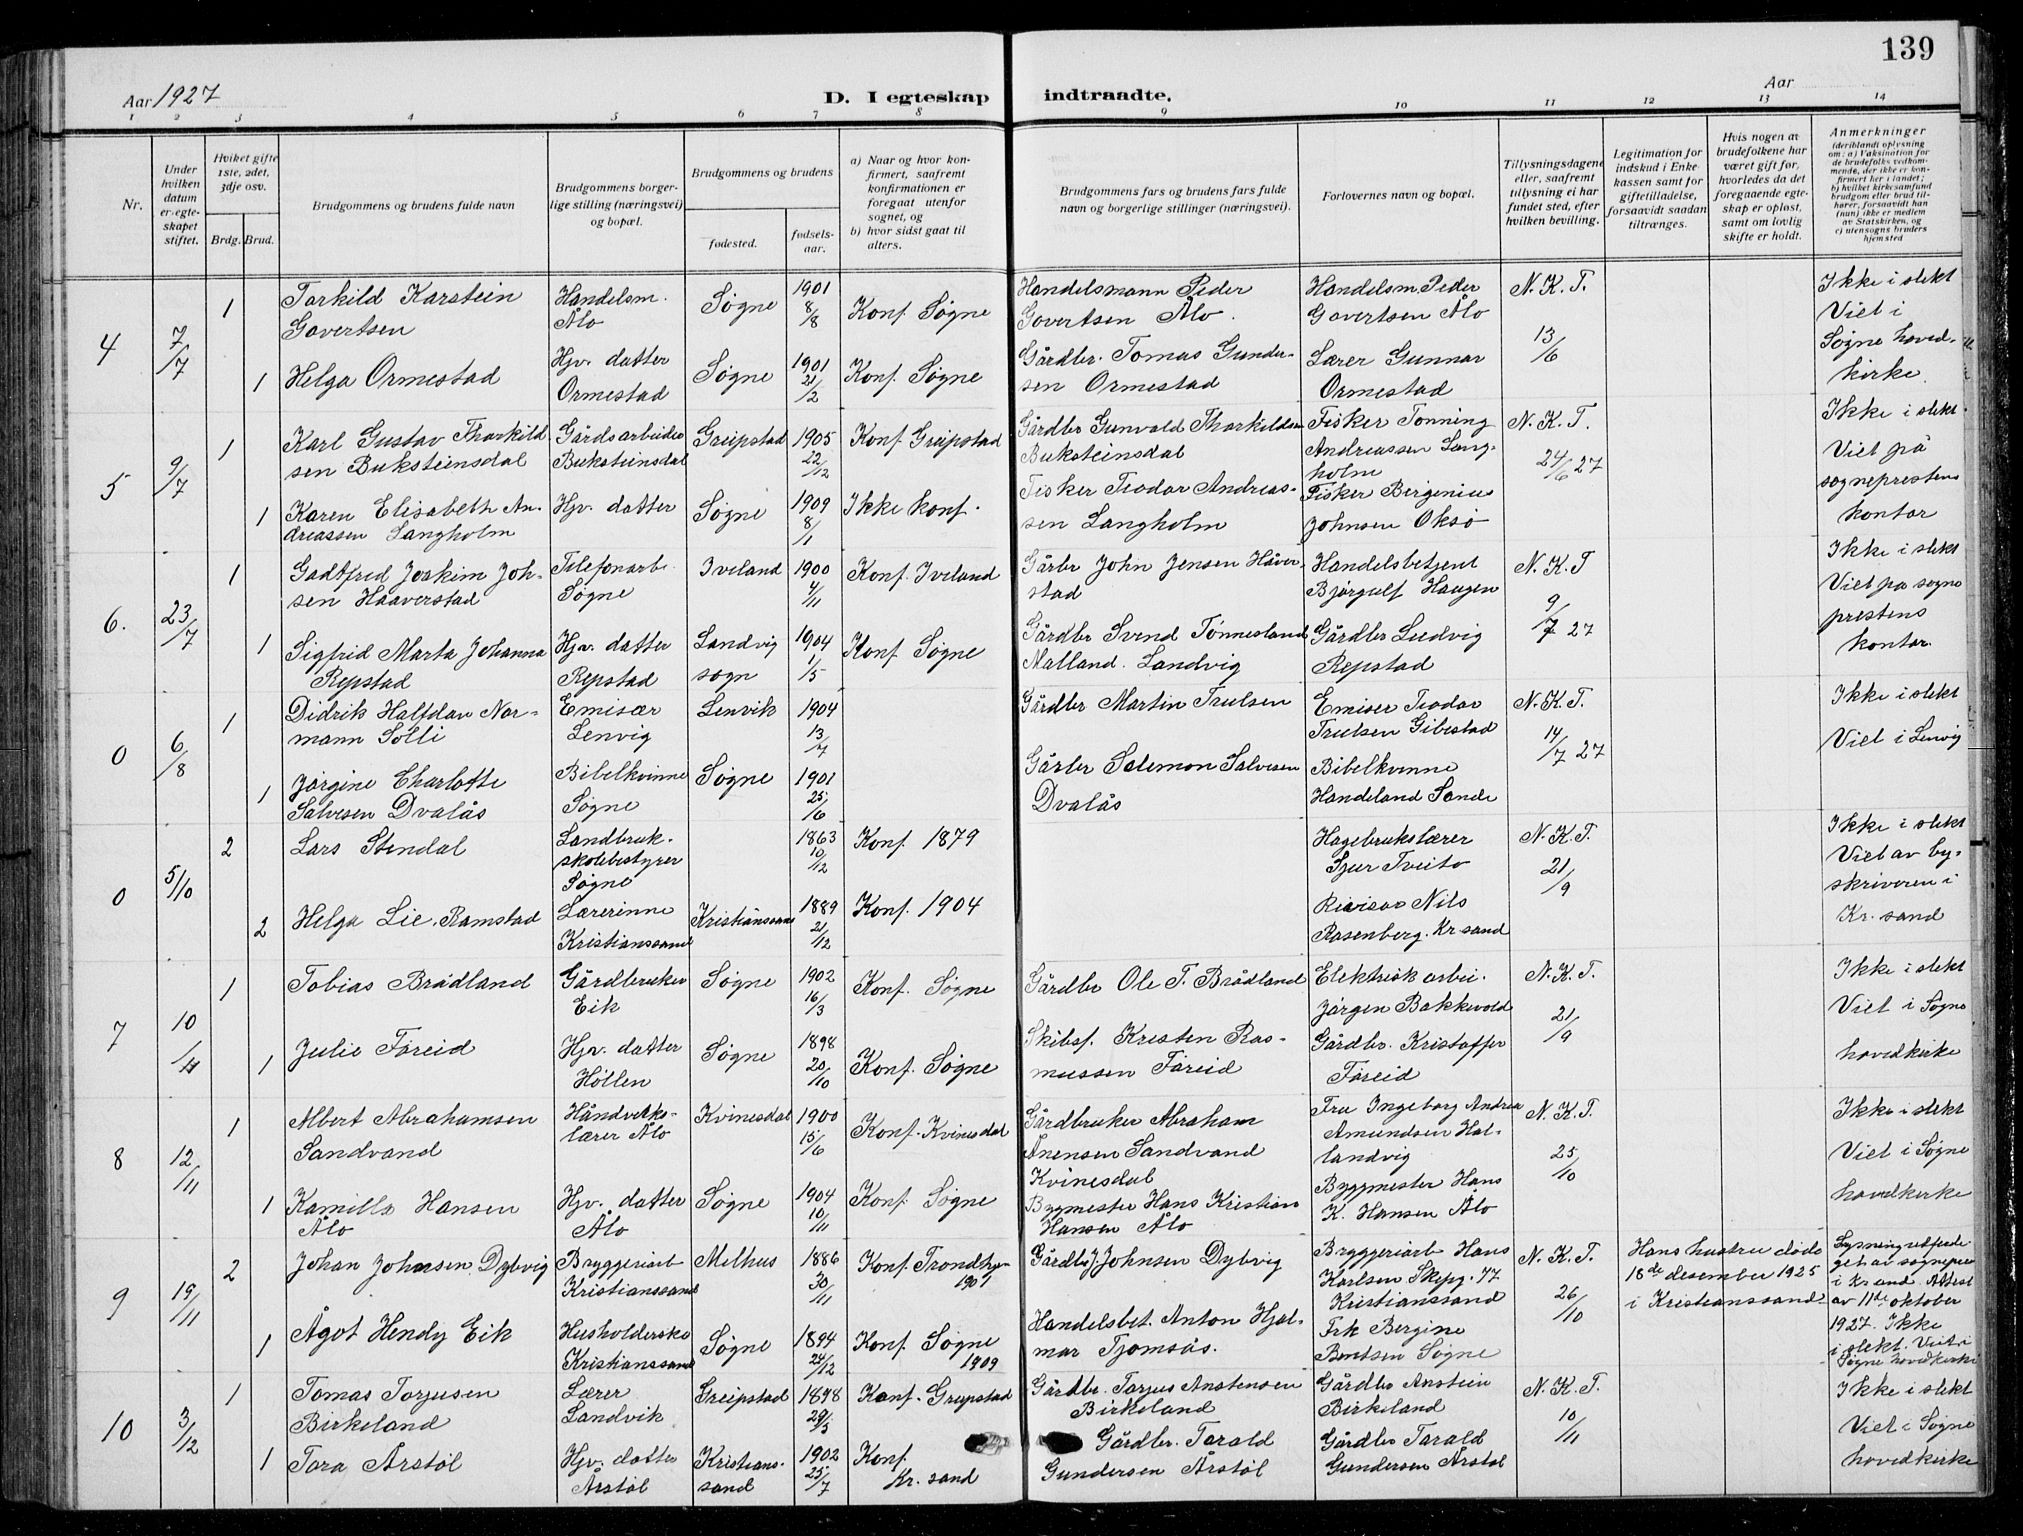 139
Aar 1927
D. I egteskap indtraadte.
Aar
1 2 3 4 5 6 7 8 9 10 11 12 13 14
Nr.
Under hvilken datum er egteskapet stiftet.
Hvilket gifte 1ste, 2det, 3dje osv.
Brdg. Brud.
Brudgommens og brudens fulde navn
Brudgommens borgerlige stilling (næringsvei) og bopæl.
Brudgommens og brudens
fødested.
fødselsaar.
a) Naar og hvor konfirmert, saafremt konfirmationen er foregaat utenfor sognet, og
b) hvor sidst gaat til alters.
Brudgommens fars og brudens fars fulde navn og borgerlige stillinger (næringsvei).
Forlovernes navn og bopæl.
Tillysningsdagene eller, saafremt tillysning ei har fundet sted, efter hvilken bevilling.
Legitimation for indskud i Enkekassen samt for giftetilladelse, forsaavidt saadan tiltrænges.
Hvis nogen av brudefolkene har været gift før, hvorledes da det foregaaende egteskap er opløst, samt om lovlig skifte er holdt.
Anmerkninger (deriblandt oplysning om: a) Vaksination for de brudefolks vedkommende, der ikke er konfirmert her i landet; b) hvilket kirkesamfund brudgom eller brud tilhører, forsaavidt han (hun) ikke er medlem av Statskirken, og c) utensogns bruders hjemsted
4 7/7
1 Torkild Karstein Govertsen
Handelsm. Ålo
Søgne
1901 8/8
Konf. Søgne
Handelsmann Peder Govertsen Ålo.
Handelsm. Peder Govertsen Ålo
N. K. T. 13/6
Ikke i slekt Viet i Søgne hovedkirke
1 Helga Ormestad
Hjv. datter Ormestad
Søgne
1901 21/2
Konf. Søgne
Gårdbr. Tomas Gundersen Ormestad
Lærer Gunnar Ormestad
5 9/7
1 Karl Gustav Thorkildsen Buksteinsdal
Gårdsarbeider Buksteinsdal
Greipstad
1905 22/12
Konf Greipstad
Gårdbr Gunvald Thorkildsen Buksteinsdal
Fisker Tonning Andreassen Langholm
N. K. T. 24/6 27
Ikke i slekt. Viet på sogneprestens kontor
1 Karen Elisabeth Andreassen Langholm
Hjv. datter
Søgne
1909 8/1
Ikke konf.
Fisker Teodor Andreassen Langholm
Fisker Bergenius Johnsen Oksø
6. 23/7
1 Godtfred Joakim Johsen Haaverstad
Telefonarb. Søgne
Iveland
1900 4/11
Konf. Iveland
Gårbr John Jensen Håverstad
Handelsbetjent Bjørgulf Haugen
N. K. T 9/7 27
Ikke i slekt Viet på sogneprestens kontor.
1 Sigfrid Marta Johanna Repstad
Hjv. datter Repstad
Landvig sogn
1904 1/5
Konf Søgne
Gårdbr Svend Tønnesland Malland. Landvig
Gårdbr Ludvig Repstad
0 6/8
1 Didrik Halfdan Normann Solli
Emisær Lenvig
Lenvik
1904 13/7
Gårdbr Martin Trulsen
Emiser Teodor Trulsen Gibostad
N. K. T. 14/7 27
Ikke i slekt Viet i Lenvig
1 Jørgine Charlotte Salvesen Dvalås
Bibelkvinne Søgne
Søgne
1901 25/6
Gårbr Salomon Salvesen Dvalås
Bibelkvinne Handeland Sande
0 5/10
2 Lars Stendal
Landbrukskolebestyrer Søgne
1863 10/12
Konf. 1879
Hagebrukslærer Sjur Tveito
N. K. T. 21/9
Ikke i slekt Viet av byskriveren i Kr. sand
2 Helga Lie. Ramstad
Lærerinne Kristianssand
Kristianssand
1889 21/12
Konf. 1904
Revisor Nils Rosenberg. Kr sand
7 10/11
1 Tobias Brådland
Gårdbruker Eik
Søgne
1902 16/3
Konf. Søgne
Gårdbr Ole T. Brådland
Elektrisk arbei. Jørgen Bakkevold
N. K. T. 21/9
Ikke i slekt Viet i Søgne hovedkirke
1 Julie Føreid
Hjv. datter Høllen
Søgne
1898 20/10
Konf. Søgne
Skibsf. Kristen Rasmussen Føreid
Gårdbr. Kristoffer Føreid
8 12/11
1 Albert Abrahamsen Sandvand
Håndverkslærer Ålo
Kvinesdal
1900 15/6
Konf. Kvinesdal
Gårdbruker Abraham Ånensen Sandvand Kvinesdal
Fru Ingeborg Andrea Amundsen Hallandvig
N. K. T. 25/10
Ikke i slekt Viet i Søgne hovedkirke
1 Kamilla Hansen Ålo
Hjv. datter Ålo
Søgne
1904 10/11
Konf. Søgne
Byggmester Hans Kristian Hansen Ålo
Byggmester Hans K. Hansen Ålo
9 19/11
2 Johan Johnsen Dybvig
Bryggeriarb Kristianssand
Melhus
1886 30/11
Konf. Trondhjm 1901
Gårdbr J. Johnsen Dybvig
Bryggeriarb Hans Karlsen Skipg. 77 Kristianssand
N. K. T. 26/10
Hans hustru døde 18de desember 1925 i Kristianssand
Lysning utført av sogneprest i Kr sand. Attest av 11te oktober 1927. Ikke i slekt. Viet i Søgne hovedkirke
1 Ågot Hendy Eik
Husholderske Kristianssand
Søgne
1894 24/12
Konf. Søgne 1909
Handelsbet. Anton Hjalmar Tjomsås.
Frk Bergine Bentsen Søgne
10 3/12
1 Tomas Torjusen Birkeland
Lærer Landvik
Greipstad
1898 29/3
Konf. Greipstad
Gårdbr. Torjus Anstensen Birkeland
Gårdbr Anstein Birkeland
N. K. T. 10/11
Ikke i slekt Viet i Søgne hovedkirke
1 Tora Årstøl
Hjv. datter Årstøl
Kristianssand
1902 25/7
Konf Kr. sand
Gårdbr. Torald Gundersen Årstøl
Gårdbr Torald Gundersen Årstøl